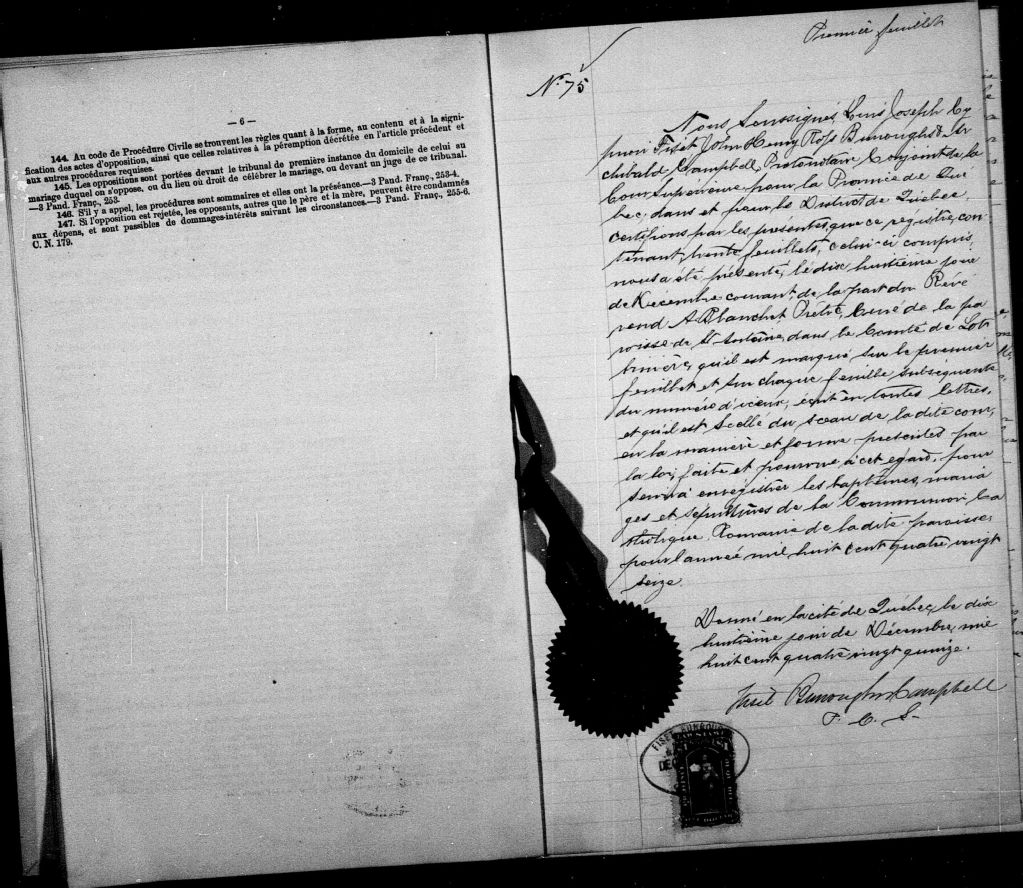 — 6 —
144. Au code de Procédure Civile se trouvent les règles quant à la forme, au contenu et à la signi-
fication des actes d'opposition, ainsi que celles relatives à la péremption décrétée en l'article précédent et
aux autres procédures requises.
145. Les oppositions sont portées devant le tribunal de première instance du domicile de celui au
mariage duquel on s'oppose, ou du lieu où droit de célébrer le mariage, ou devant un juge de ce tribunal.
—3 Pand. Franç., 253.
146. S'il y a appel, les procédures sont sommaires et elles ont la préséance.—3 Pand. Franç., 253-4.
147. Si l'opposition est rejetée, les opposants, autres que le père et la mère, peuvent être condamnés
aux dépens, et sont passibles de dommages-intérêts suivant les circonstances.—3 Pand. Franç., 255-6.
C. N. 179.
Premier feuillet
No. 75
Nous Soussignés, Louis Joseph Cy
prien Fiset, John Henry Ross Burroughs & Ar
chibald Campbell, Protonotaire Conjoint de la
Cour Supérieure, pour la Province de Qué
bec, dans et pour le District de Québec,
certifions par les présentes, que ce régistre, con
tenant, trente feuillets, celui-ci compris,
nous a été présenté, le dix huitième jour
de Decembre courant, de la part du Révé
rend A. Blanchet Prêtre, Curé de la pa
roisse de St Antoine, dans le Comté de Lot
binière, qu'il est marqué sur le premier
feuillet et sur chaque feuille subséquente
du numéro d'iceux, écrit en toutes lettres,
et qu'il est scellé du sceau de la dite cour,
en la manière et forme prescrites par
la loi, faite et pourvue à cet égard, pour
servir à enregistrer les baptêmes, maria
ges et sépultures de la Communion Ca
tholique Romaine de la dite paroisse,
pour l'année mil huit cent quatre vingt
seize.
Donné en la cité de Québec, le dix
huitième jour de Décembre, mil
huit cent quatre vingt quinze.
Fiset Burroughs Campbell
P. C. S.
FISET, BURROUGHS
DEC